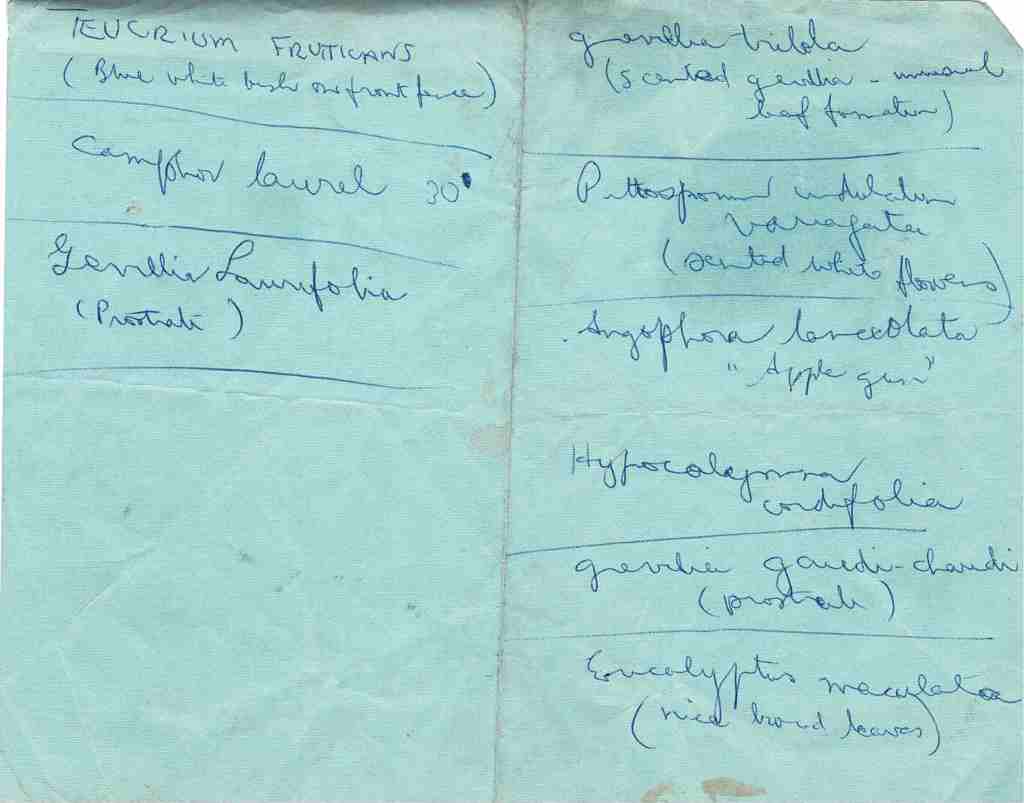 TEUCRIUM FRUTICANS
(Blue white bush on front fence)
Camphor laurel 30'
Grevillia Laurifolia
(Prostrate)
grevillia triloba
(Scented grevillia - unusual
leaf formation)
Pittosporum undulatum
variagata
(scented white flowers)
Angophora lanceolata
"Apple gum"
Hypocalymma
cordifolia
grevillia gaudi-chaudi
(prostrate)
Eucalyptus maculata
(nice broad leaves)